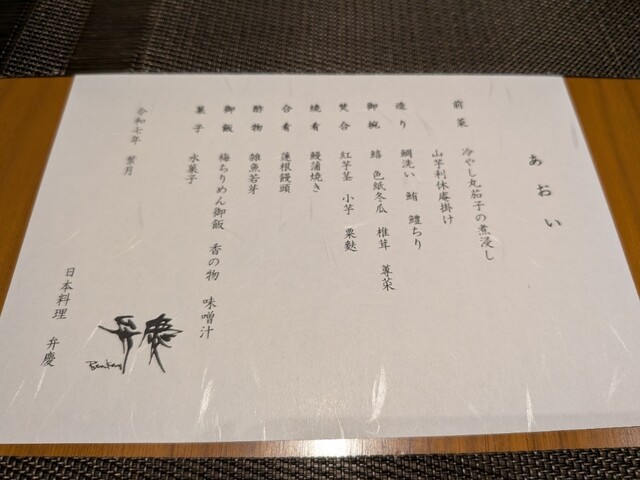 あおい
前菜 冷やし丸茄子の煮浸し
山芋利休庵掛け
造り 鯛洗い 鮪 鱧ちり
御椀 鱚 色紙冬瓜 椎茸 蓴菜
焚合 紅芋茎 小芋 粟麩
焼肴 鰻蒲焼き
合肴 蓮根饅頭
酢物 雑魚若芽
御飯 梅ちりめん御飯 香の物 味噌汁
菓子 水菓子
令和七年 葉月
日本料理 弁慶
弁慶
Benkey